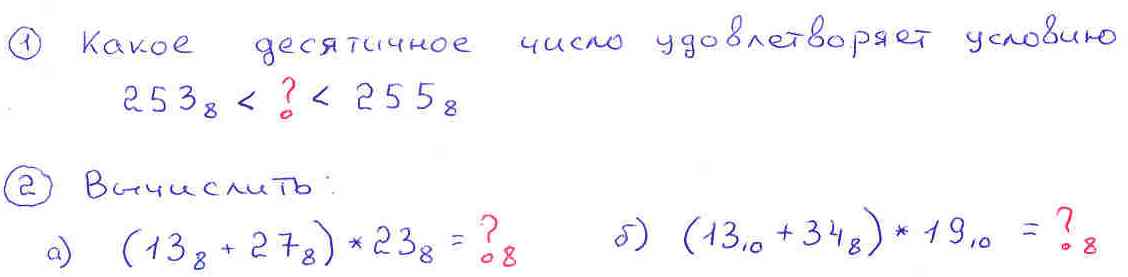 ① Какое десятичное число удовлетворяет условию
253₈ < ? < 255₈
② Вычислить:
а) (13₈ + 27₈) * 23₈ = ?₈ б) (13₁₀ + 34₈) * 19₁₀ = ?₈